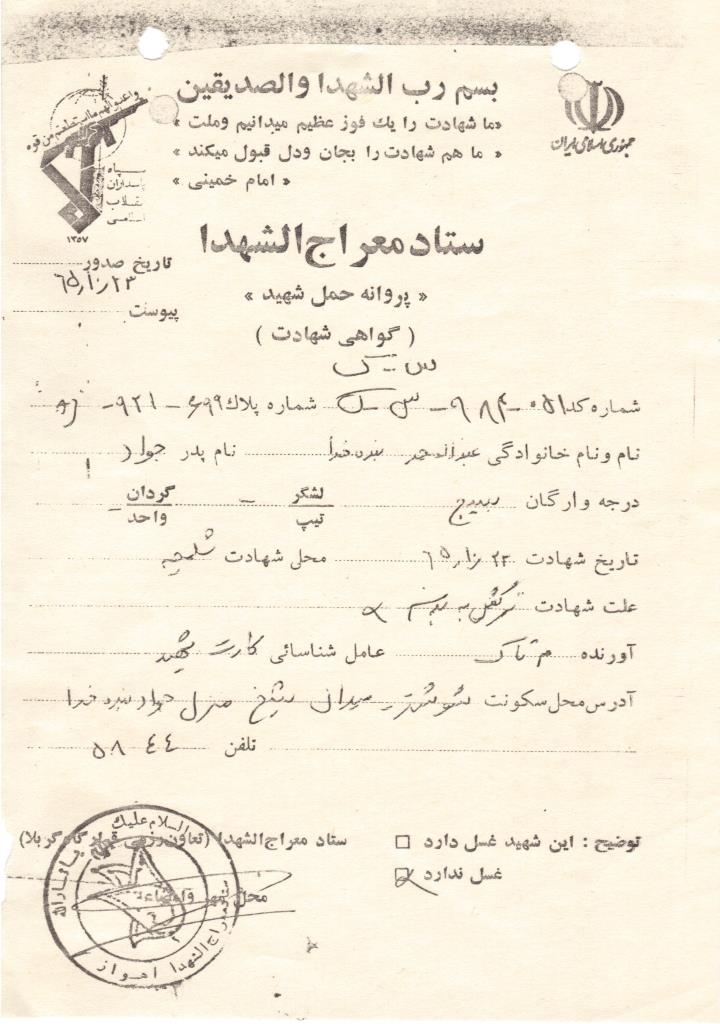 بسم رب الشهدا والصدیقین
«ما شهادت را یك فوز عظیم میدانیم وملت »
« ما هم شهادت را بجان ودل قبول میکند »
« امام خمینی »
جمهوری اسلامی ایران
واعدوالهم ما استطعتم من قوة
سپاه
پاسداران
انقلاب
اسلامی
۱۳۵۷
ستاد معراج الشهدا
تاریخ صدور
۶۵٫۱۰٫۲۳
« پروانه حمل شهید »
پیوست
( گواهی شهادت )
شماره کد شماره پلاك
نام ونام خانوادگی بنده خدا نام پدر جواد
درجه وارگان بسیج لشگر تیپ - گردان واحد -
تاریخ شهادت ۶۵٫۱۰٫۲۳ محل شهادت شلمچه
علت شهادت ترکش به
آورنده عامل شناسائی کارت
آدرس محل سکونت شوشتر - میدان شیخ منزل جواد بنده خدا
تلفن ۵۸ ٤٤
توضیح : این شهید غسل دارد
غسل ندارد
ستاد معراج الشهدا (تعاون رزمی قرارگاه کربلا)
محل مهر وامضاء
السلام علیک یا انصارالله
ستاد معراج الشهدا اهواز